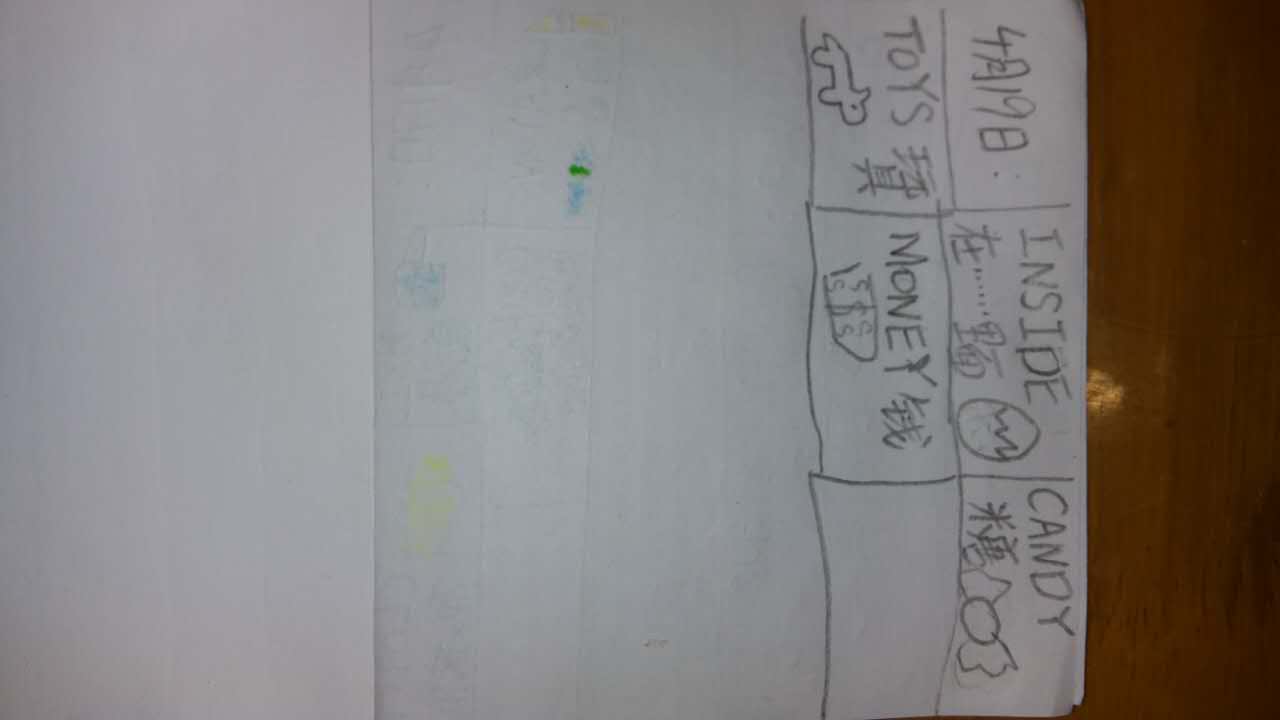 4月19日:
INSIDE
在……里面
CANDY
糖
TOYS 玩具
MONEY 钱